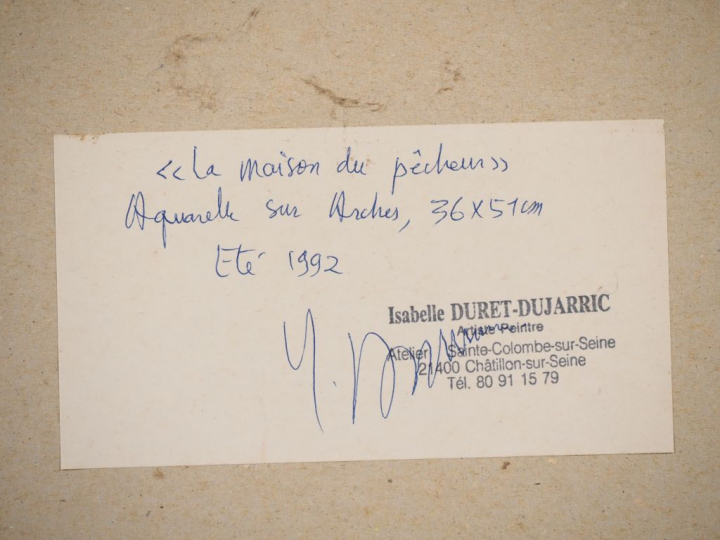 <<La maison du pêcheur>>
Aquarelle sur Arches, 36X51cm
Eté 1992
Isabelle DURET-DUJARRIC
Artiste Peintre
Atelier Sainte-Colombe-sur-Seine
21400 Châtillon-sur-Seine
Tél. 80 91 15 79